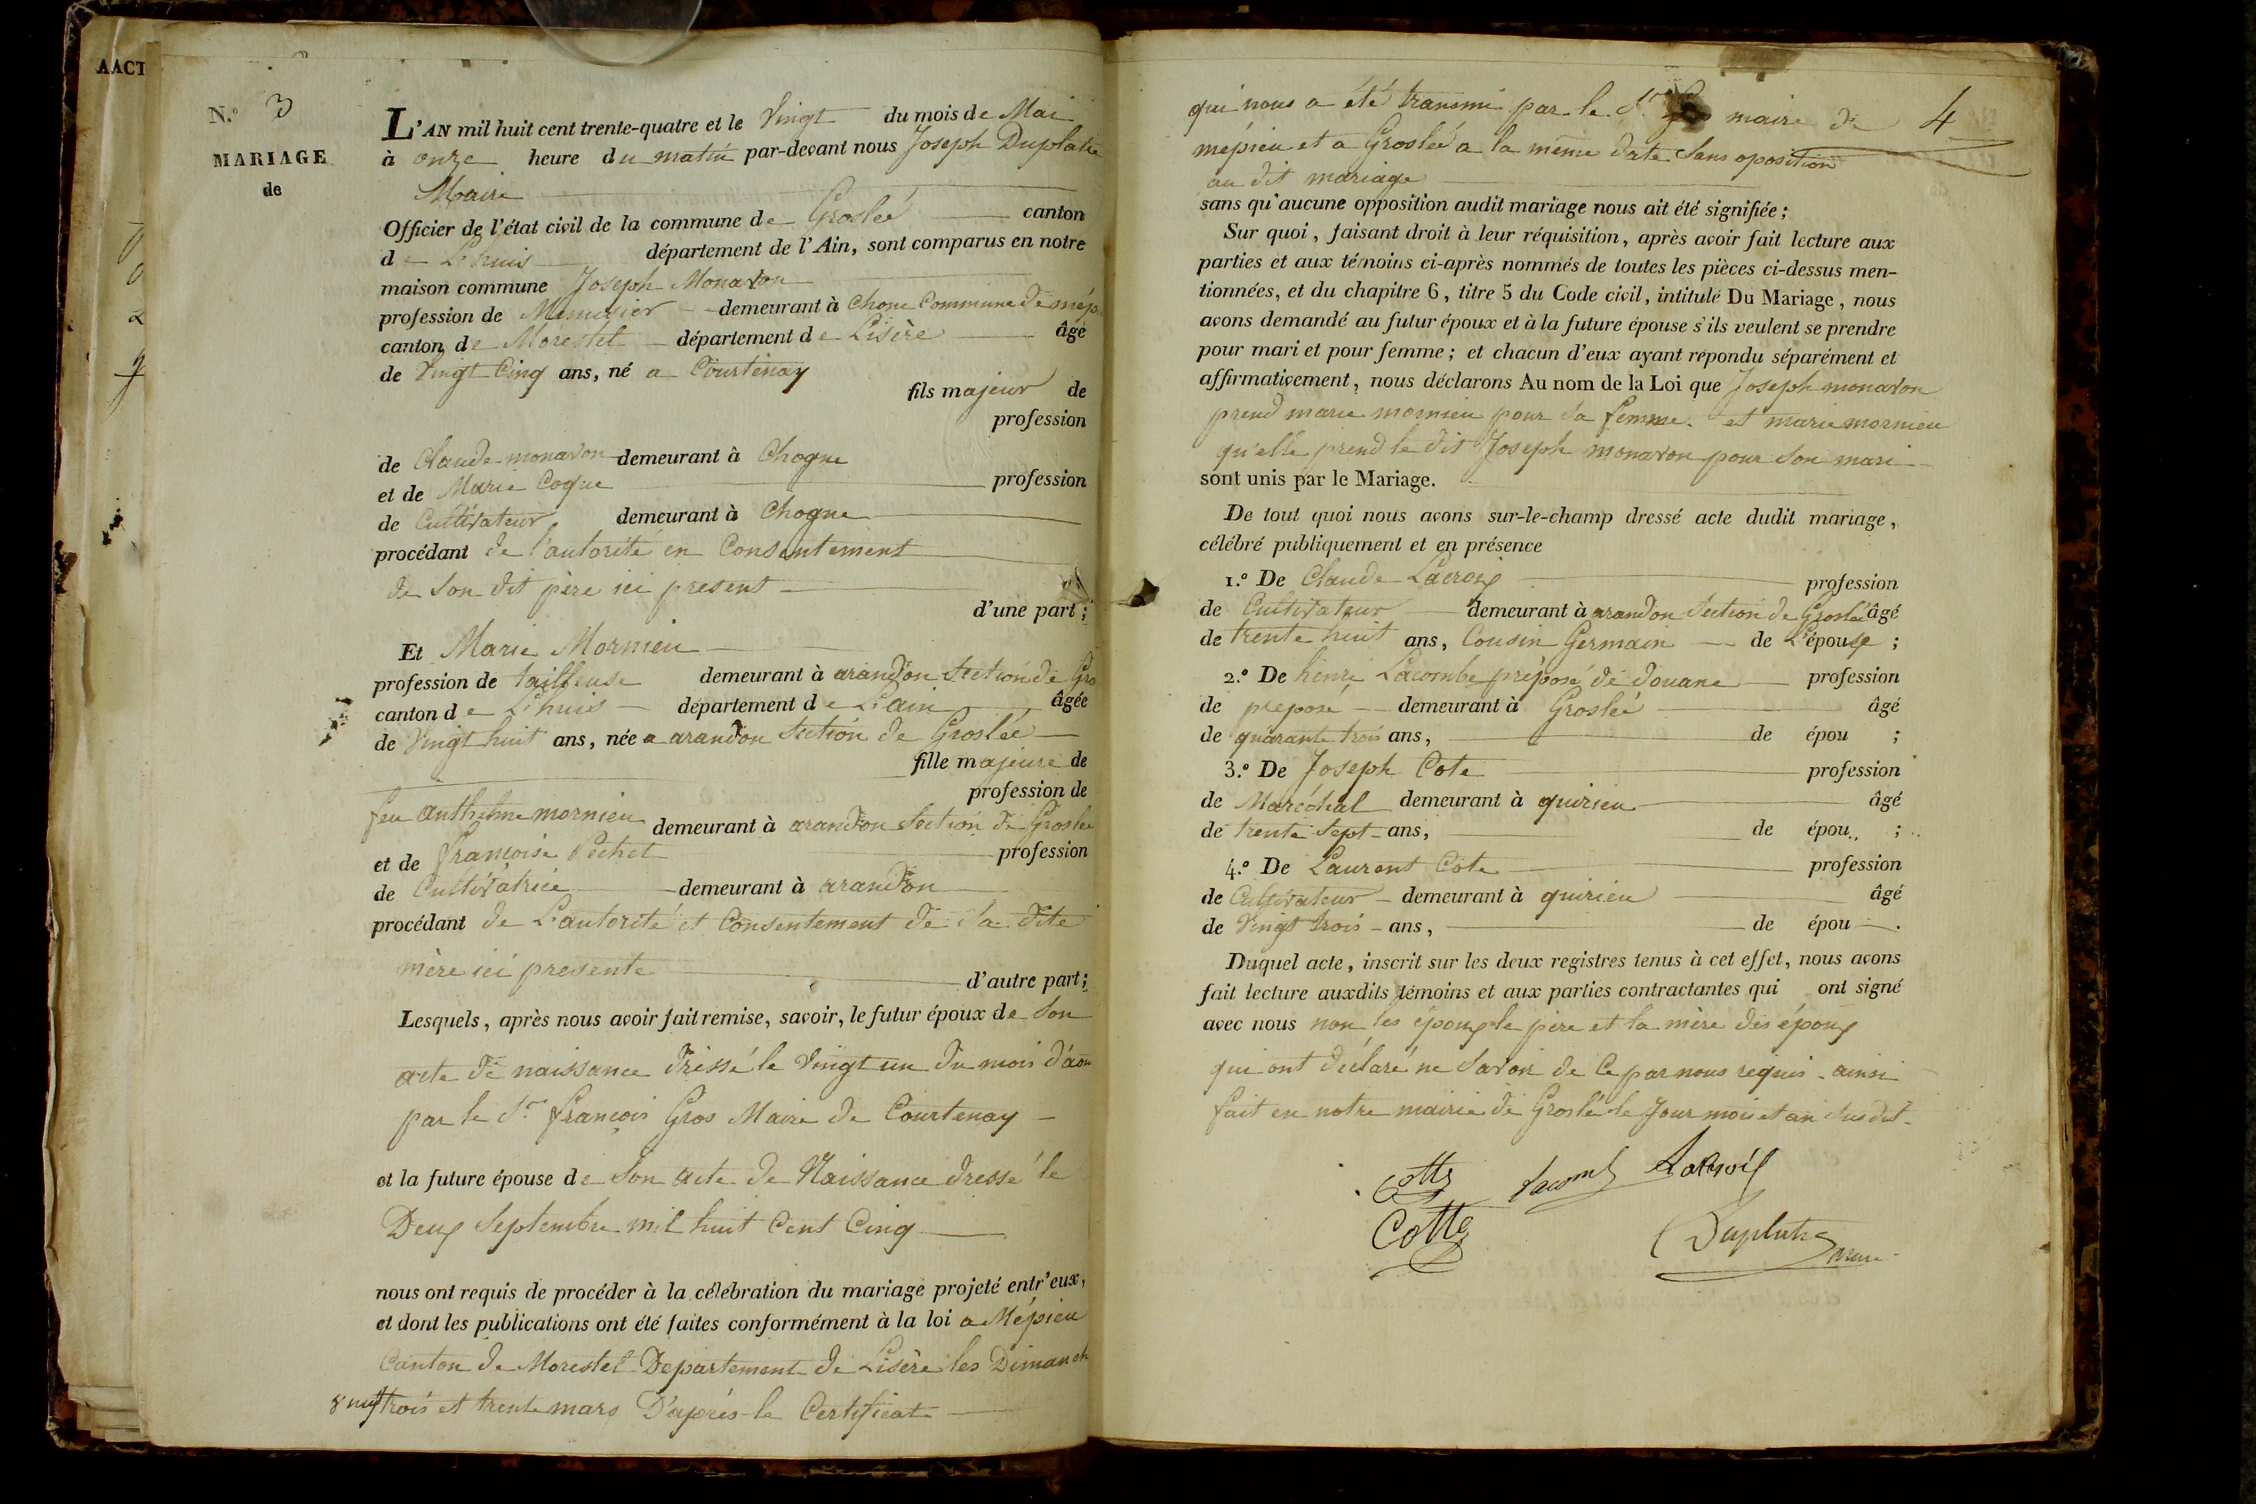 AACT
N.º 3
MARIAGE
de
L'AN mil huit cent trente-quatre et le Vingt du mois de Mai
à onze heure du matin par-devant nous Joseph Duplatre
Maire
Officier de l'état civil de la commune de Groslée canton
de Lhuis département de l'Ain, sont comparus en notre
maison commune Joseph Monavon
profession de Menuisier demeurant à Chone Commune de mép
canton de Morestel département de Lisère âgé
de Vingt Cinq ans, né a Courtenay
fils majeur de
profession
de Claude monavon demeurant à Chogne
et de Marie Cogne profession
de Cultivateur demeurant à Chogne
procédant de l'autorité en Consentement
de Son dit père ici present
d'une part ;
Et Marie Mornieu
profession de tailleuse demeurant à arandon Section de Gro
canton de Lhuis département de Lain âgée
de Vingt huit ans, née a arandon Section de Groslée
fille majeure de
profession de
feu anthelme mornieu demeurant à arandon Section de Groslée
et de françoise Pechet profession
de Cultivatrice demeurant à arandon
procédant de L'autorité et Consentement de Sa dite
mère ici presente
d'autre part ;
Lesquels, après nous avoir fait remise, savoir, le futur époux de Son
acte de naissance dressé le Vingt un du mois d'aou
par le Sr françois Gros Maire de Courtenay
et la future épouse de Son acte de Naissance dressé le
Deux Septembre mil huit Cent Cinq
nous ont requis de procéder à la célébration du mariage projeté entr'eux,
et dont les publications ont été faites conformément à la loi a Mépieu
Canton de Morestel Departement de Lisère les Dimanch
vingt trois et trente mars D'après le Certificat
qui nous a été transmi par le Sr maire de 4
mépieu et a Groslée a la même date Sans oposition
au dit mariage
sans qu'aucune opposition audit mariage nous ait été signifiée ;
Sur quoi, faisant droit à leur réquisition, après avoir fait lecture aux
parties et aux témoins ci-après nommés de toutes les pièces ci-dessus men-
tionnées, et du chapitre 6, titre 5 du Code civil, intitulé Du Mariage, nous
avons demandé au futur époux et à la future épouse s'ils veulent se prendre
pour mari et pour femme ; et chacun d'eux ayant répondu séparément et
affirmativement, nous déclarons Au nom de la Loi que Joseph monavon
prend marie mornieu pour Sa femme. et marie mornieu
qu'elle prend le dit Joseph monavon pour Son mari
sont unis par le Mariage.
De tout quoi nous avons sur-le-champ dressé acte dudit mariage,
célébré publiquement et en présence
1.º De Claude Lacroix profession
de Cultivateur demeurant à arandon Section de Groslée âgé
de trente huit ans, Cousin Germain de L'épouse ;
2.º De henri Lacombe préposé de douane profession
de preposé demeurant à Groslée âgé
de quarante trois ans, de épou ;
3.º De Joseph Cote profession
de Maréchal demeurant à quirieu âgé
de trente Sept ans, de épou ;
4.º De Laurent Cote profession
de Cultivateur demeurant à quirieu âgé
de Vingt trois ans, de épou .
Duquel acte, inscrit sur les deux registres tenus à cet effet, nous avons
fait lecture auxdits témoins et aux parties contractantes qui ont signé
avec nous non les époux le père et la mère des époux
qui ont déclaré ne Savoir de Ce par nous requis. ainsi
fait en notre mairie de Groslée le Jour mois et an Susdit
Cotte Lacomb Lacroix
Cotte Duplatre maire